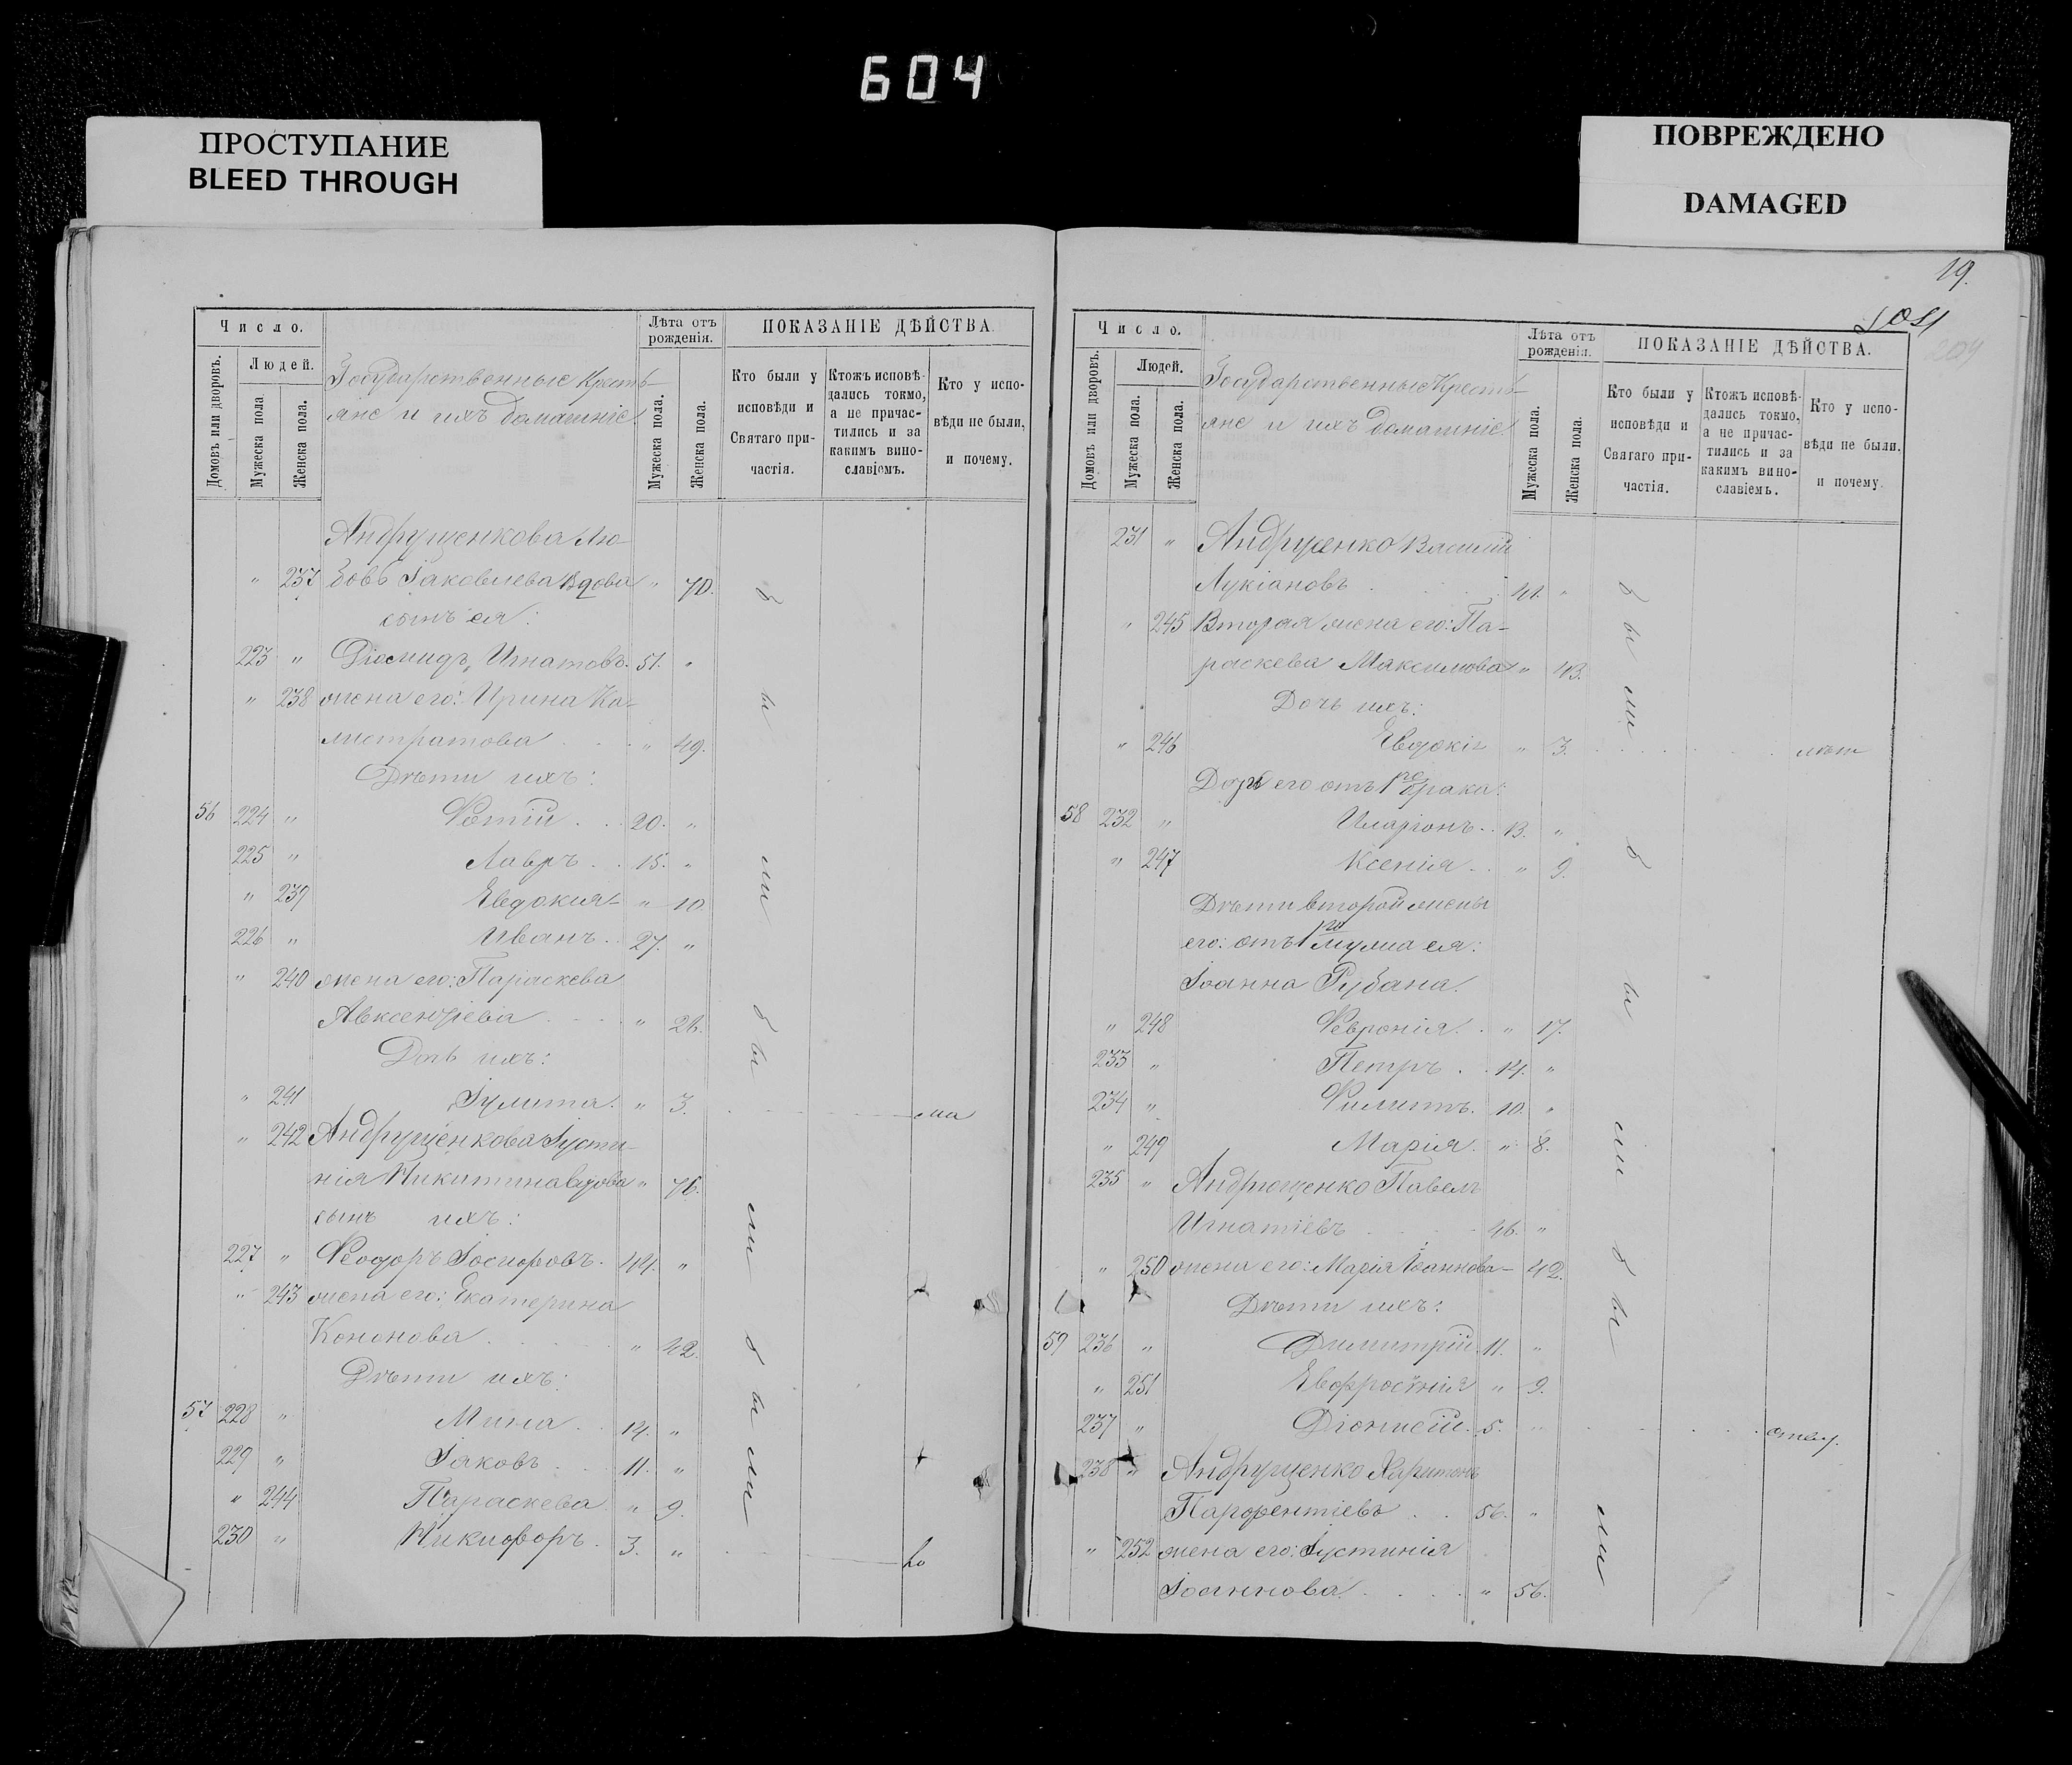 604
ПРОСТУПАНИЕ
BLEED THROUGH
ПОВРЕЖДЕНО
DAMAGED
Число.
Людей.
Домовъ или дворовъ.
Мужеска пола
Женска пола.
Государственные Кресть-
яне и ихъ домашніе.
Лѣта отъ
рожденія.
Мужеска пола.
Женска пола.
ПОКАЗАНІЕ ДѢЙСТВА.
Кто были у
исповѣди и
Святаго при-
частія.
Ктожъ исповѣ-
дались токмо,
а не причас-
тились и за
какимъ вино-
славіемъ.
Кто у испо-
вѣди не были,
и почему.
Андрущенкова Лю-
" 237 бовь Іаковлева вдова " 70.
сынъ ея:
223 " Діомидъ Игнатовъ. 51. "
" 238 жена его: Ирина Ка-
листратова " 49.
Дѣти ихъ:
56 224 " Фотій 20. "
225 " Лавръ 15. "
" 239 Евдокия " 10
226 " Иванъ 27. "
" 240 жена его: Параскева
Авксентіева " 26.
Дочь ихъ:
" 241 Іулита " 3. ма
" 242 Андрущенкова Іусти-
нія Никитина вдова " 76.
сынъ ихъ:
227 " Феодоръ Іосифовъ. 44. "
" 243 жена его: Екатерина
Кононова " 42.
Дѣти ихъ:
57 228 " Мина 14. "
229 " Іаковъ 11. "
" 244 Параскева " 9.
230 " Никифоръ 3. " ло
были
были
были
19.
204
Число.
Людей.
Домовъ или дворовъ.
Мужеска пола.
Женска пола.
Государственные Кресть-
яне и ихъ домашніе.
Лѣта отъ
рожденія.
Мужеска пола.
Женска пола.
ПОКАЗАНІЕ ДѢЙСТВА.
Кто были у
исповѣди и
Святаго при-
частія.
Ктожъ исповѣ-
дались токмо,
а не причас-
тились и за
какимъ вино-
славіемъ.
Кто у испо-
вѣди не были,
и почему.
231 " Андрущенко Василій
Лукіановъ 41. "
" 245 Вторая жена его: Па-
раскева Максимова " 43.
Дочь ихъ:
" 246 Евдокія " 3.
его отъ 1го брака:
58 232 " Иларіонъ 13. "
" 247 Ксенія " 9.
Дѣти второй жены
его: отъ 1го мужа ея:
Іоанна Рубана.
" 248 Февронія " 17.
233 " Петръ 14. "
234 " Филиппъ. 10. "
" 249 Марія. " 8.
235 " Андрющенко Павелъ
Игнатіевъ 46. "
" 250 жена его: Марія Іоаннова 42.
Дѣти ихъ:
59 236 " Димитрій 11. "
" 251 Евфросинія " 9.
237 " Діонисій. 5. "
238 " Андрущенко Харитонъ
Парфентіевъ 56. "
" 252 жена его: Іустинія
Іоаннова " 56.
были
были
были